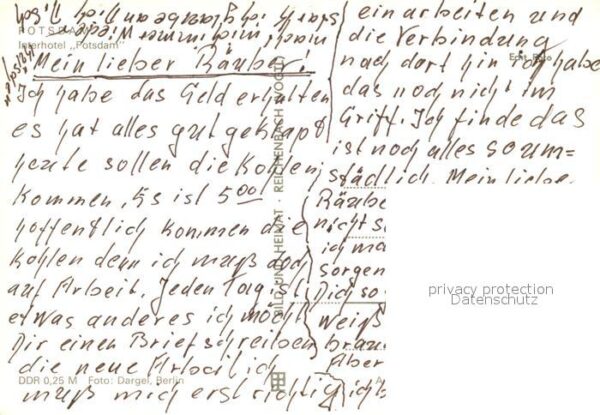 POTSDAM
Interhotel „Potsdam"
Echt Foto
Mein lieber Räuber!
Ich habe das Geld erhalten
es hat alles gut geklappt
heute sollen die Kohlen
kommen, Es ist 5 00
hoffentlich kommen die
Kohlen denn ich muß doch
auf Arbeit. Jeden Tag ist
etwas anderes ich möcht
Dir einen Brief schreiben
die neue Arbeit ich
muß mich erst richtig
einarbeiten und
die Verbindung
nach dort hin ich habe
das noch nicht im
Griff. Ich finde das
ist noch alles so um=
ständlich. Mein liebe
Räube
nicht s
ich ma
sorgen
Dich so
Weiß
brau
Aber
ich
BILD UND HEIMAT · REICHENBACH (VOGTL)
privacy protection
Datenschutz
DDR 0,25 M Foto: Dargel, Berlin